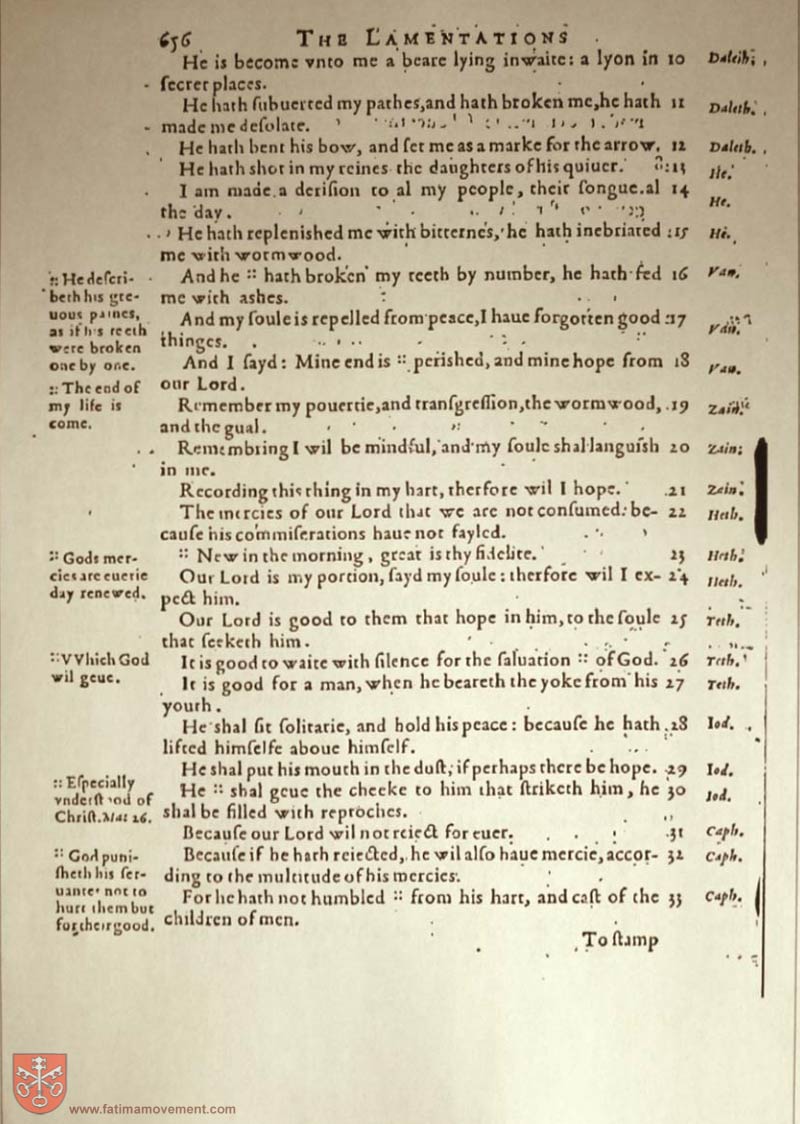 656 THE LAMENTATIONS
He is become vnto me a beare lying in waite: a lyon in 10 Daleth.
ſecret places.
He hath ſubuerted my pathes, and hath broken me, he hath 11 Daleth.
made me deſolate.
He hath bent his bow, and ſet me as a marke for the arrow. 12 Daleth.
He hath shot in my reines the daughters of his quiuer. 13 He.
I am made a deriſion to al my people, their ſongue al 14 He.
the day.
He hath replenished me with bitternes, he hath inebriated 15 He.
me with wormwood.
And he :: hath broken my teeth by number, he hath fed 16 Vau.
me with ashes.
And my ſoule is repelled from peace, I haue forgotten good 17 Vau.
thinges.
And I ſayd: Mine end is :: perished, and mine hope from 18 Vau.
our Lord.
Remember my pouertie, and tranſgreſſion, the wormwood, 19 Zain.
and the gual.
Remembring I wil be mindful, and my ſoule shal languish 20 Zain.
in me.
Recording this thing in my hart, therfore wil I hope. 21 Zain.
The mercies of our Lord that we are not conſumed: be- 22 Heth.
cauſe his commiſerations haue not fayled.
:: New in the morning, great is thy fidelite. 23 Heth.
Our Lord is my portion, ſayd my ſoule: therfore wil I ex- 24 Heth.
pect him.
Our Lord is good to them that hope in him, to the ſoule 25 Teth.
that ſeeketh him.
It is good to waite with ſilence for the ſaluation :: of God. 26 Teth.
It is good for a man, when he beareth the yoke from his 27 Teth.
youth.
He shal ſit ſolitarie, and hold his peace: becauſe he hath 28 Iod.
lifted himſelfe aboue himſelf.
He shal put his mouth in the duſt, if perhaps there be hope. 29 Iod.
He :: shal geue the cheeke to him that ſtriketh him, he 30 Iod.
shal be filled with reproches.
Becauſe our Lord wil not reiect for euer. 31 Caph.
Becauſe if he hath reiected, he wil alſo haue mercie, accor- 32 Caph.
ding to the multitude of his mercies.
For he hath not humbled :: from his hart, and caſt of the 33 Caph.
children of men.
To ſtamp
:: He deſcri-
beth his gre-
uous paines,
as if his teeth
were broken
one by one.
:: The end of
my life is
come.
:: Gods mer-
cies are euerie
day renewed.
:: VVhich God
wil geue.
:: Eſpecially
vnderſtood of
Chriſt. Mat 26.
:: God puni-
sheth his ſer-
uantes not to
hurt them but
for their good.
www.fatimamovement.com